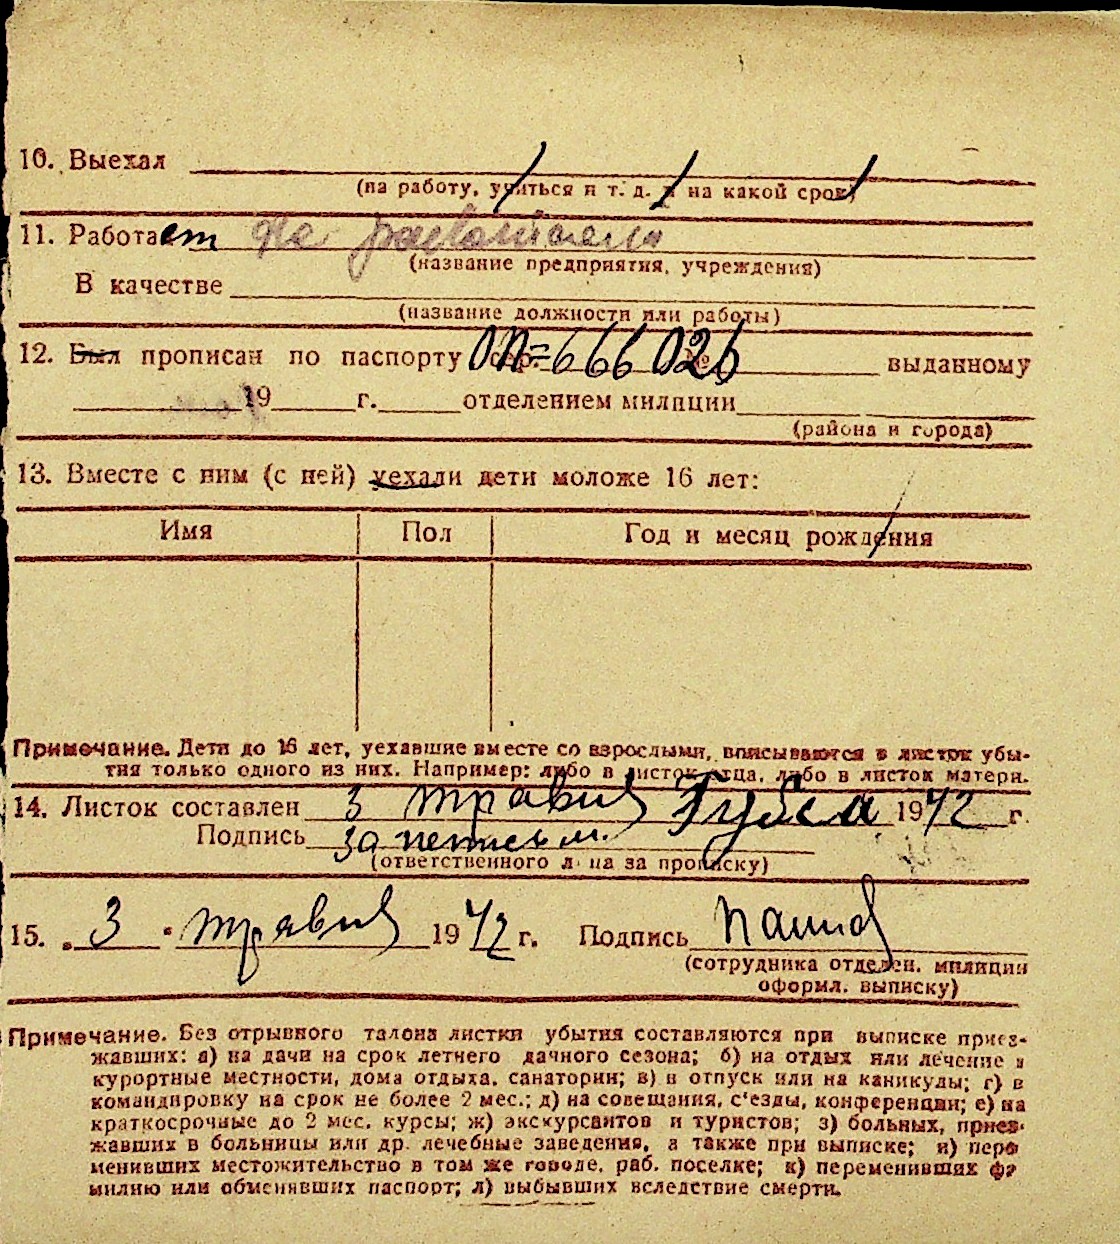 10. Выехал
(на работу, учиться и т. д. и на какой срок)
11. Работает
(название предприятия, учреждения)
В качестве
(название должности или работы)
12. Был прописан по паспорту сер. ОП=666026 № выданному
19 г. отделением милиции
(района и города)
13. Вместе с ним (с ней) уехали дети моложе 16 лет:
Имя Пол Год и месяц рождения
Примечание. Дети до 16 лет, уехавшие вместе со взрослыми, вписываются в листок убы-
тия только одного из них. Например: либо в листок отца, либо в листок матери.
14. Листок составлен 3 травня 1942 г.
Подпись
(ответственного лица за прописку)
15. „3" травня 1942 г. Подпись
(сотрудника отделен. милиции
оформл. выписку)
Примечание. Без отрывного талона листки убытия составляются при выписке приез-
жавших: а) на дачи на срок летнего дачного сезона; б) на отдых или лечение в
курортные местности, дома отдыха, санатории; в) в отпуск или на каникулы; г) в
командировку на срок не более 2 мес.; д) на совещания, с'езды, конференции; е) на
краткосрочные до 2 мес. курсы; ж) экскурсантов и туристов; з) больных, приез-
жавших в больницы или др. лечебные заведения, а также при выписке; и) пере
менивших местожительство в том же городе, раб. поселке; к) переменивших фа
милию или обменявших паспорт; л) выбывших вследствие смерти.